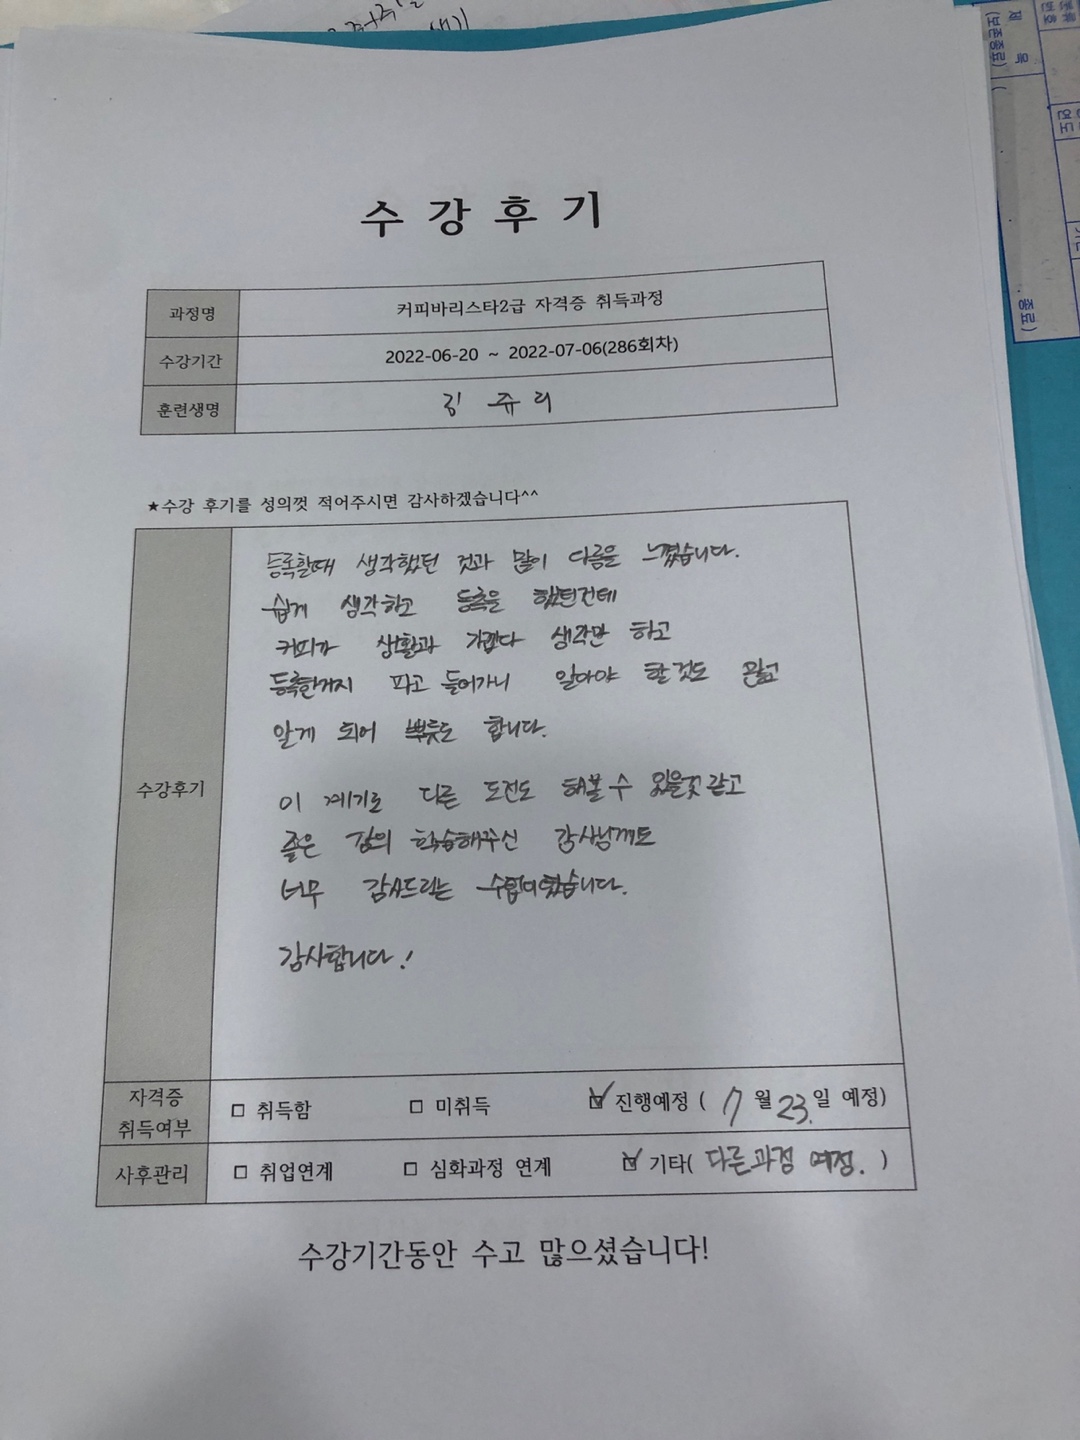 수강후기
과정명 커피바리스타2급 자격증 취득과정
수강기간 2022-06-20 ~ 2022-07-06(286회차)
훈련생명 김 쥬 리
★수강 후기를 성의껏 적어주시면 감사하겠습니다^^
수강후기
등록할때 생각했던 것과 많이 다름을 느꼈습니다.
쉽게 생각하고 등록을 했던건데
커피가 생활과 가깝다 생각만 하고
등록한거지 파고 들어가니 알아야 할것도 많고
알게 되어 뿌듯도 합니다.
이 계기로 다른 도전도 해볼 수 있을것 같고
좋은 강의 학습해주신 강사님께도
너무 감사드리는 수업이었습니다.
감사합니다!
자격증 취득여부 □ 취득함 □ 미취득 ☑ 진행예정 ( 7 월 23.일 예정)
사후관리 □ 취업연계 □ 심화과정 연계 ☑ 기타( 다른과정 예정. )
수강기간동안 수고 많으셨습니다!
제 목
(보존종료)
종료)
연도